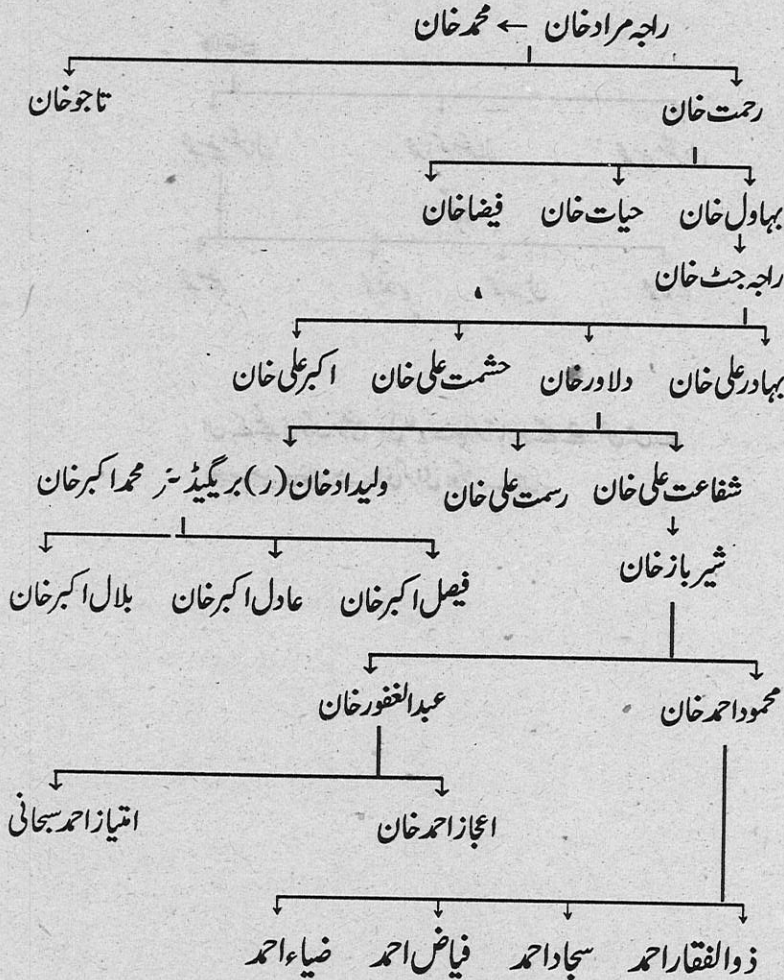 راجہ مراد خان ← محمد خان
رحمت خان تاجو خان
بہاول خان حیات خان فیضا خان
راجہ جٹ خان
بہادر علی خان دلاور خان حشمت علی خان اکبر علی خان
شفاعت علی خان رسمت علی خان ولیداد خان (ر) بریگیڈیئر محمد اکبر خان
شیر باز خان
فیصل اکبر خان عادل اکبر خان بلال اکبر خان
محمود احمد خان عبدالغفور خان
اعجاز احمد خان امتیاز احمد سبحانی
ذوالفقار احمد سجاد احمد فیاض احمد ضیاء احمد